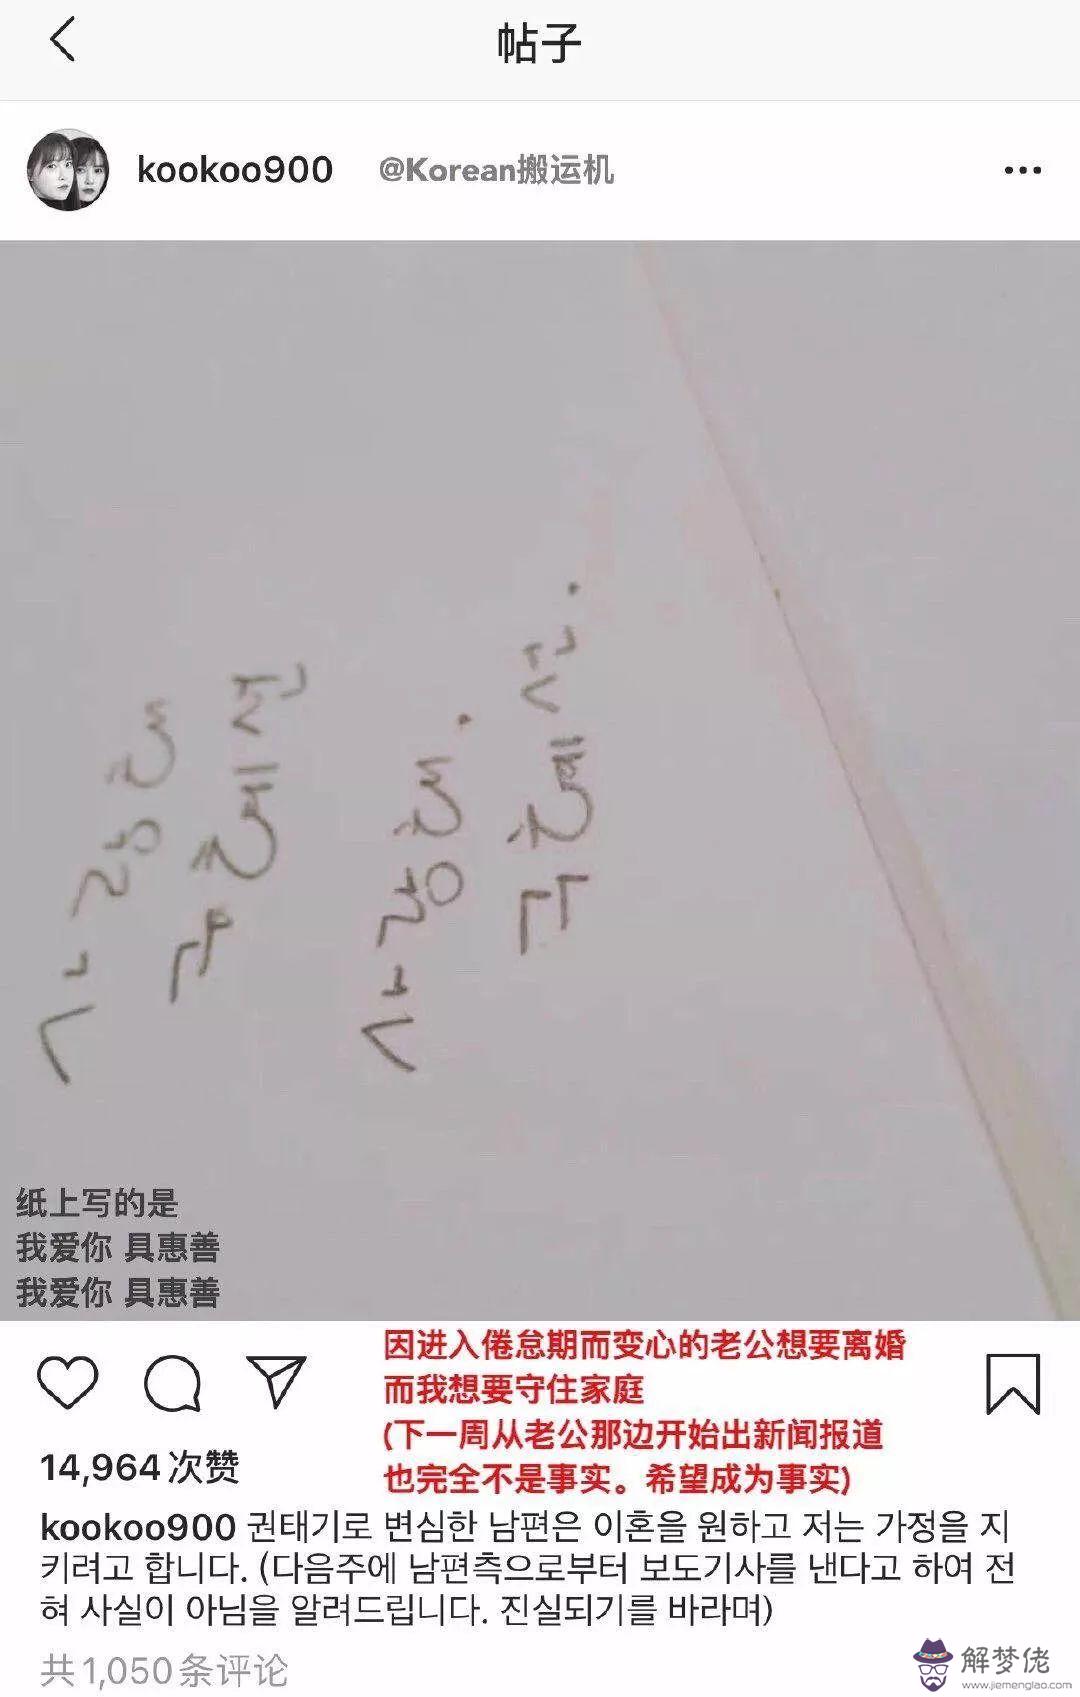 帖子
kookoo900 @Korean搬运机
사랑해
구혜선
사랑해.
구혜선.
纸上写的是
我爱你 具惠善
我爱你 具惠善
因进入倦怠期而变心的老公想要离婚
而我想要守住家庭
(下一周从老公那边开始出新闻报道
也完全不是事实。希望成为事实)
14,964次赞
kookoo900 권태기로 변심한 남편은 이혼을 원하고 저는 가정을 지
키려고 합니다. (다음주에 남편측으로부터 보도기사를 낸다고 하여 전
혀 사실이 아님을 알려드립니다. 진실되기를 바라며)
共1,050条评论
解梦佬
www.jiemenglao.com